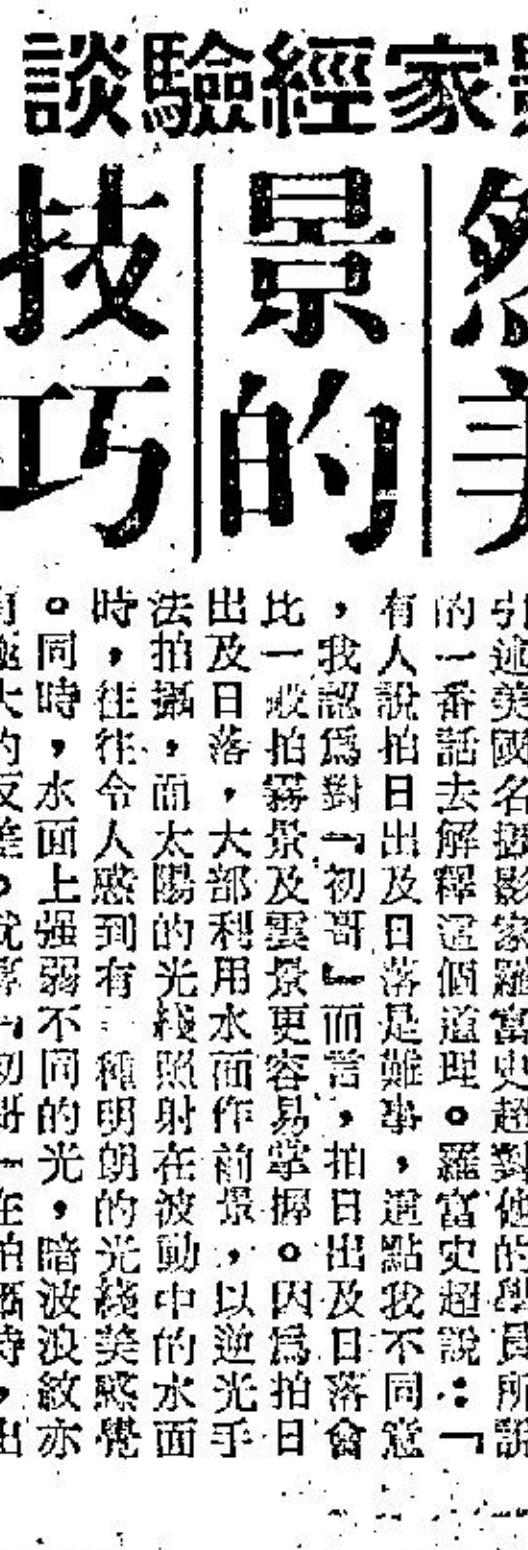 談驗經家
景的
技巧
引述美國名攝影家羅富史超對他的學員所說
的一番話去解釋這個道理。羅富史超說：「
有人說拍日出及日落是難事，這點我不同意
，我認爲對『初哥』而言，拍日出及日落會
比一般拍霧景及雲景更容易掌握。因爲拍日
出及日落，大部利用水面作前景，以逆光手
法拍攝，而太陽的光綫照射在波動中的水面
時，往往令人感到有一種明朗的光綫美感覺
。同時，水面上强弱不同的光，暗波浪紋亦